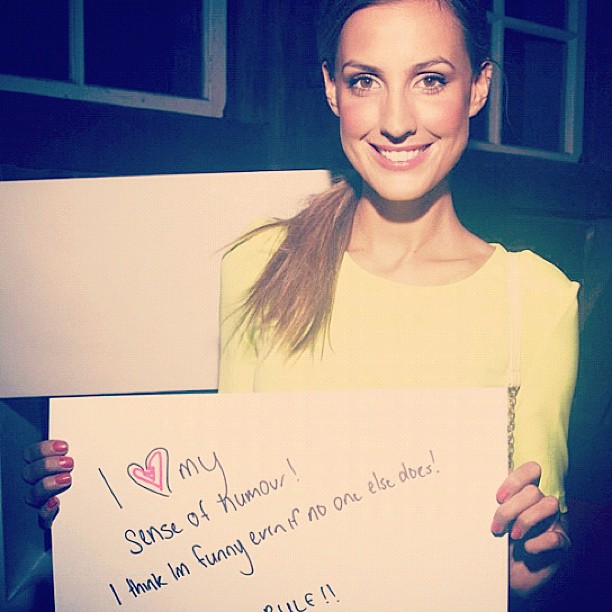 I ♥ my
sense of humour!
I think Im funny even if no one else does!
RULE!!